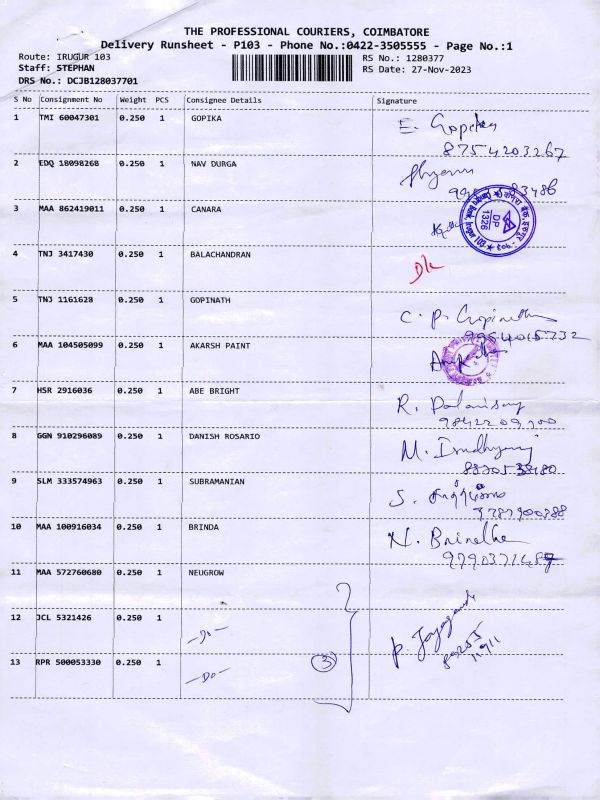 THE PROFESSIONAL COURIERS, COIMBATORE
Delivery Runsheet - P103 - Phone No.:0422-3505555 - Page No.:1
Route: IRUGUR 103
Staff: STEPHAN
DRS No.: DCJB128037701
RS No.: 1280377
RS Date: 27-Nov-2023
S No Consignment No Weight PCS Consignee Details Signature
1 TMI 60047301 0.250 1 GOPIKA E. Gopika
8754203267
2 EDQ 18098268 0.250 1 NAV DURGA
3 MAA 862419011 0.250 1 CANARA
DP 1326
4 TNJ 3417430 0.250 1 BALACHANDRAN
5 TNJ 1161628 0.250 1 GOPINATH C. P. Gopinath
6 MAA 104505099 0.250 1 AKARSH PAINT
7 HSR 2916036 0.250 1 ABE BRIGHT R. Palanisamy
9842209700
8 GGN 910296089 0.250 1 DANISH ROSARIO M.
9 SLM 333574963 0.250 1 SUBRAMANIAN S.
9787900388
10 MAA 100916034 0.250 1 BRINDA N. Brindha
11 MAA 572760680 0.250 1 NEUGROW
12 JCL 5321426 0.250 1 -Do-
13 RPR 500053330 0.250 1 -Do- 3 P.